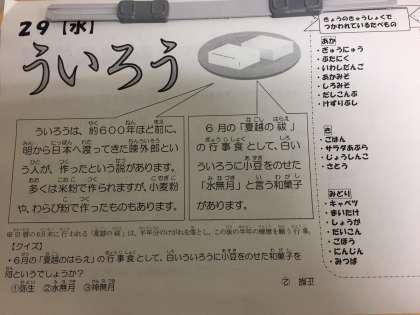 29【水】
ういろう
ういろうは、約600年ほど前に、
明から日本へ渡ってきた陳外郎とい
う人が、作ったという説があります。
多くは米粉で作られますが、小麦粉
や、わらび粉で作ったものもあります。
6月の「夏越の祓」
の行事食として、白い
ういろうに小豆をのせた
「水無月」と言う和菓子
があります。
※旧暦の6月末に行われる「夏越の祓」は、半年分のけがれを落とし、この後の半年の健康を願う行事。
【クイズ】
・6月の「夏越のはらえ」の行事食として、白いういろうに小豆をのせた和菓子を
何というでしょうか?
①弥生 ②水無月 ③神無月
正解 ②
きょうのきゅうしょくで
つかわれているたべもの
あか
・ぎゅうにゅう
・ぶたにく
・いわしだんご
・あかみそ
・しろみそ
・だしこんぶ
・けずりぶし
き
・ごはん
・サラダあぶら
・じょうしんこ
・さとう
みどり
・キャベツ
・まいたけ
・しょうが
・だいこん
・ごぼう
・にんじん
・みつば